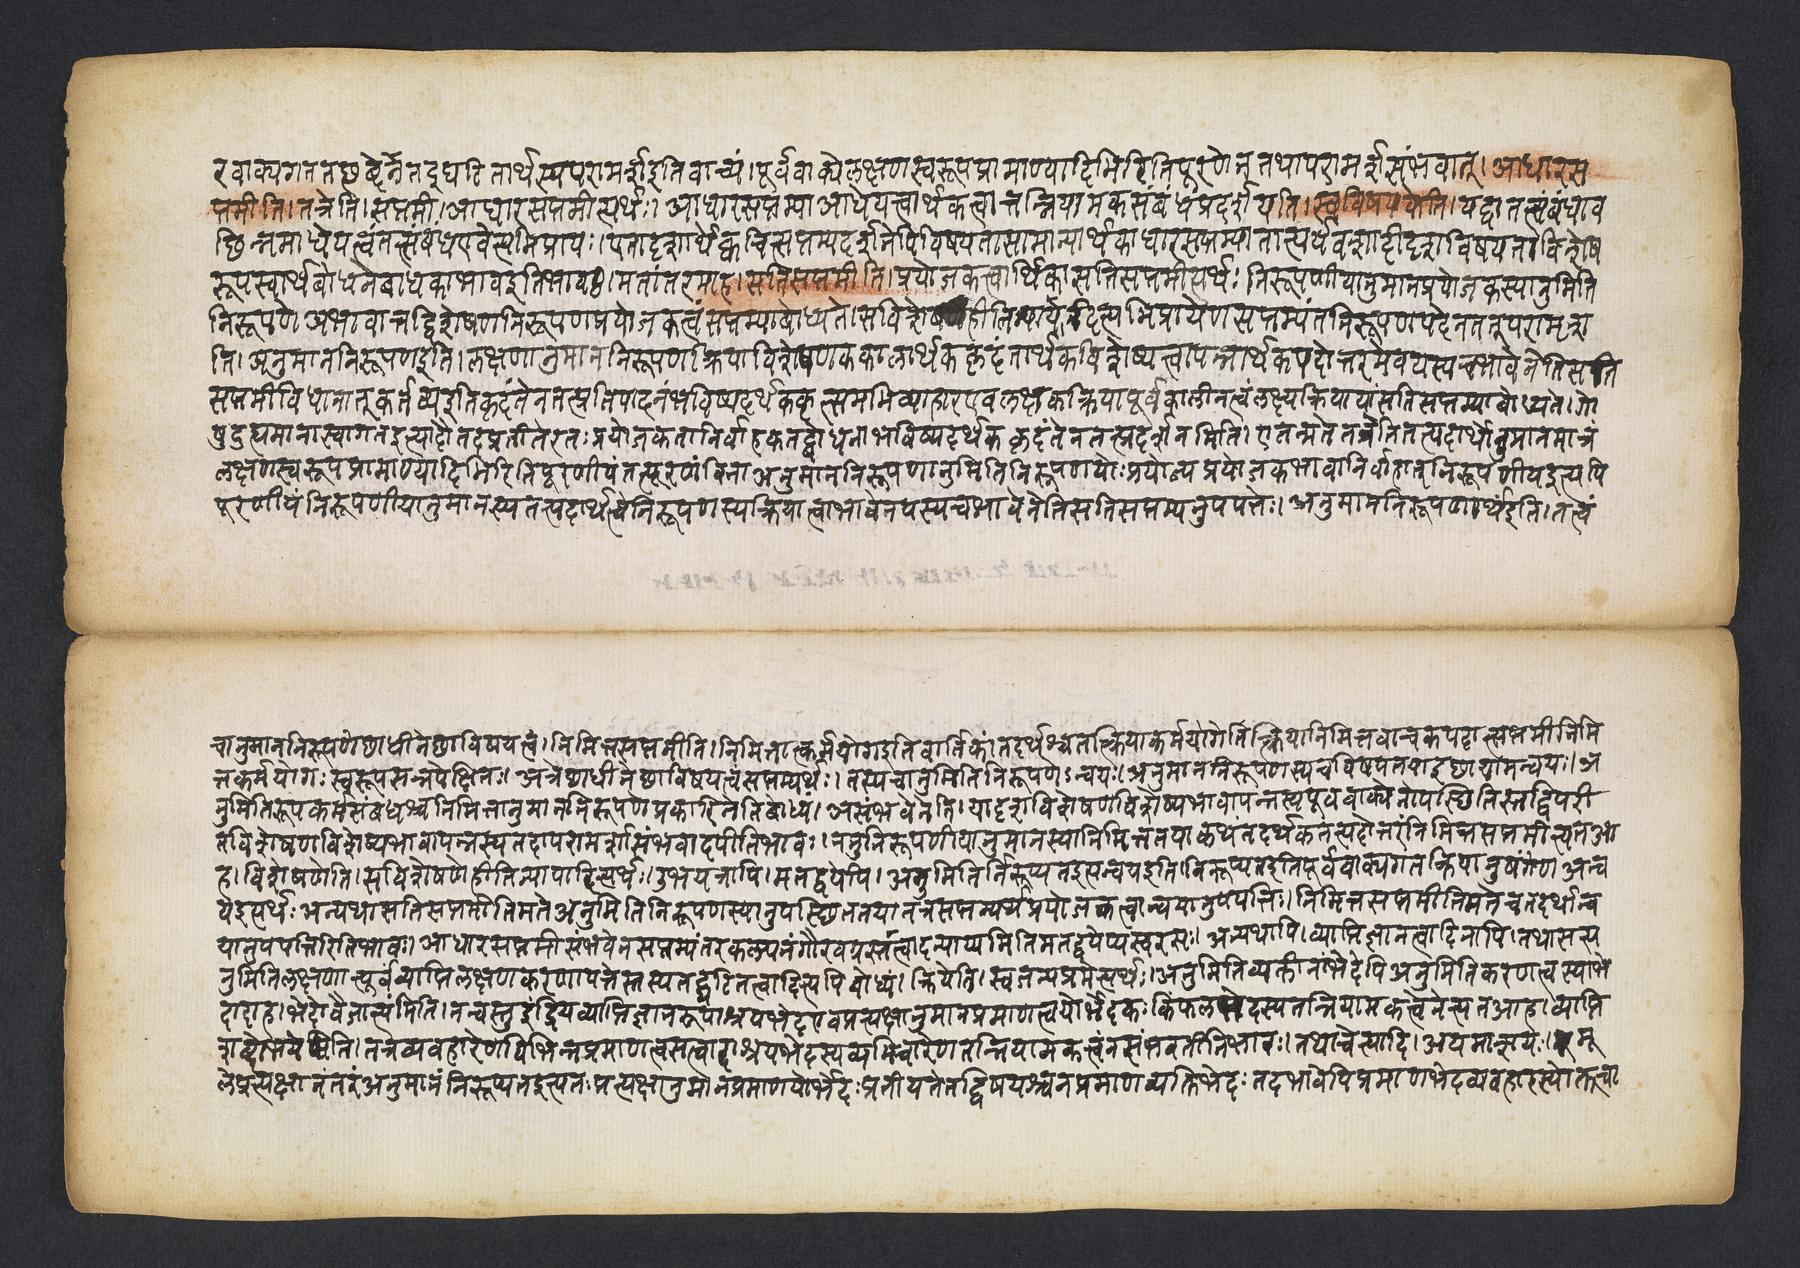 रवाक्यगततछब्देनतदुघटितार्थस्यपरामर्शइतिवाच्यं।पूर्ववाक्येलक्षणस्वरूपप्रामाण्यादिभिरितिपूरणेनतथापरामर्शासंभवात्।आधारस
प्तमीति।तत्रेति।सप्तमी।आधारसप्तमीत्यर्थः।आधारसप्तम्याआधेयत्वार्थकत्वात्तन्नियामकसंबंधंप्रदर्शयति।स्वविषयकेति।यद्वातत्संबंधाव
छिन्नमाधेयत्वंतत्संबंधएवेत्यभिप्रायः।एतादृशार्थेक्वचित्सप्तम्यदर्शनेपिविषयतासामान्यार्थकाधारसप्तम्यातात्पर्यवशादीदृशविषयताविशेष
रूपस्वार्थबोधनेबाधकाभावइतिभावः।मतांतरमाह।सतिसप्तमीति।प्रयोजकत्वार्थिकासतिसप्तमीत्यर्थः।निरूपणीयानुमानप्रयोजकस्यानुमिति
निरूपणेअभावात्तद्विशेषणनिरूपणप्रयोजकत्वंसप्तम्याबोध्यते।सविशेषणेहीतिन्यायादित्यभिप्रायेणसप्तम्यंतनिरूपणपदेनतत्परामृश
ति।अनुमाननिरूपणइति।लक्षणानुमाननिरूपणक्रियाविशेषणककालार्थककृदंतार्थकविशेष्यत्वापन्नार्थकपदोत्तरमेवयस्यचभावेनेतिसति
सप्तमीविधानात्कर्तव्यइतिकृदंतेनतत्प्रतिपादनंभविष्यदर्थककृत्समभिव्याहारएवलक्षककियापूर्वकालीनत्वंलक्ष्यक्रियायांसतिसप्तम्याबोध्यते।गो
षुदुह्यमानास्वागतइत्यादौतदप्रतीतेरतःप्रयोजकतानिर्वाहकतद्बोधनाभविष्यदर्थककृदंतेनतत्प्रदर्शनमिति।एतन्मतेतत्रेतितत्पदार्थोनुमानमात्रं
लक्षणस्वरूपप्रामाण्यादिभिरितिपूरणीयंतत्पूरणंविनाअनुमाननिरूपणानुमितिनिरूपणयोःप्रयोज्यप्रयोजकभावानिर्वाहात्निरूपणीयइत्यपि
पूरणीयंनिरूपणीयानुमानस्यतत्पदार्थत्वेनिरूपणस्यक्रियात्वाभावेनयस्यचभावेनेतिसतिसप्तम्यनुपपत्तेः।अनुमाननिरूपणार्थइति।तत्त्वं
चानुमाननिरूपणेछाधीनेछाविषयत्वं।निमित्तसप्तमीति।निमित्तात्कर्मयोगइतिवार्तिकांतदर्थश्चतत्क्रियाकर्मयोगेतत्क्रियानिमित्तवाचकपदात्सप्तमीनिमि
त्तकर्मयोगःस्वरूपसन्नपेक्षितः।अत्रेछाधीनेछाविषयत्वंसप्तम्यर्थः।तस्यचानुमितिनिरूपणेऽन्वयः।अनुमाननिरूपणस्यचविषयतयाइछायामन्वयः।अ
नुमितिरूपकर्मसंबंधश्चनिमित्तानुमाननिरूपणप्रकारितेतिबोध्यं।असंभवेनेति।यादृशविशेषणविशेष्यभावापन्नस्यपूर्ववाक्येनोपस्थितिस्तद्विपरी
तविशेषणविशेष्यभावापन्नस्यतदापरामर्शासंभवादपीतिभावः।ननुनिरूपणीयानुमानस्यानिमित्ततयाकथंतदर्थकतत्पदोत्तरंनिमित्तसप्तमीत्यतआ
ह।विशेषणेति।सविशेषणेहीतिन्यायादित्यर्थः।उभयत्रापि।मतद्वयेपि।अनुमितिर्निरूप्यतइत्यन्वयइति।निरूप्यतइतिपूर्ववाक्यगतक्रियानुषंगेणअन्व
यइत्यर्थः।अन्यथासतिसप्तमीतिमतेअनुमितिनिरूपणस्यानुपस्थिततयातत्रसप्तम्यर्थप्रयोजकत्वान्वयानुपपत्तिः।निमित्तसप्तमीतिमतेचतदर्थान्व
यानुपपत्तिरितिभावः।आधारसप्तमीसंभवेनसप्तम्यंतरकल्पनंगौरवग्रस्तत्वादन्याय्यमितिमतद्वयेप्यस्वरसः।अन्यथापि।व्याप्तिज्ञानत्वादिनापि।तथासत्य
नुमितिलक्षणात्पूर्वंव्याप्तिलक्षणकरणापत्तेस्तस्यतद्घटितत्वादित्यपिबोध्यं।क्रियेति।स्वजन्यप्रमेत्यर्थः।अनुमितिव्यक्तीनांभेदेपिअनुमितिकरणत्वस्याभे
दादाह।भेदोवैजात्यमिति।नन्वस्तुइंद्रियव्याप्तिज्ञानरूपाश्रयभेदएवप्रत्यक्षानुमानप्रमाणत्वयोर्भेदकःकिंफलभेदस्यतन्नियामकत्वेनेत्यतआह।व्याप्ति
ज्ञानोभयेति।तत्रव्यवहारेणविभिन्नप्रमाणत्वसत्वात्आश्रयभेदस्यव्यभिचारेणतन्नियामकत्वंनसंभवतीतिभावः।तथाचेत्यादि।अयमाशयः।मू
लेप्रत्यक्षानंतरंअनुमानंनिरूप्यतइत्यतःप्रत्यक्षानुमानप्रमाणयोर्भेदःप्रतीयतेतद्विषयश्चनप्रमाणव्यक्तिभेदःतदभावेपिप्रमाणभेदव्यवहारस्योक्तत्वा